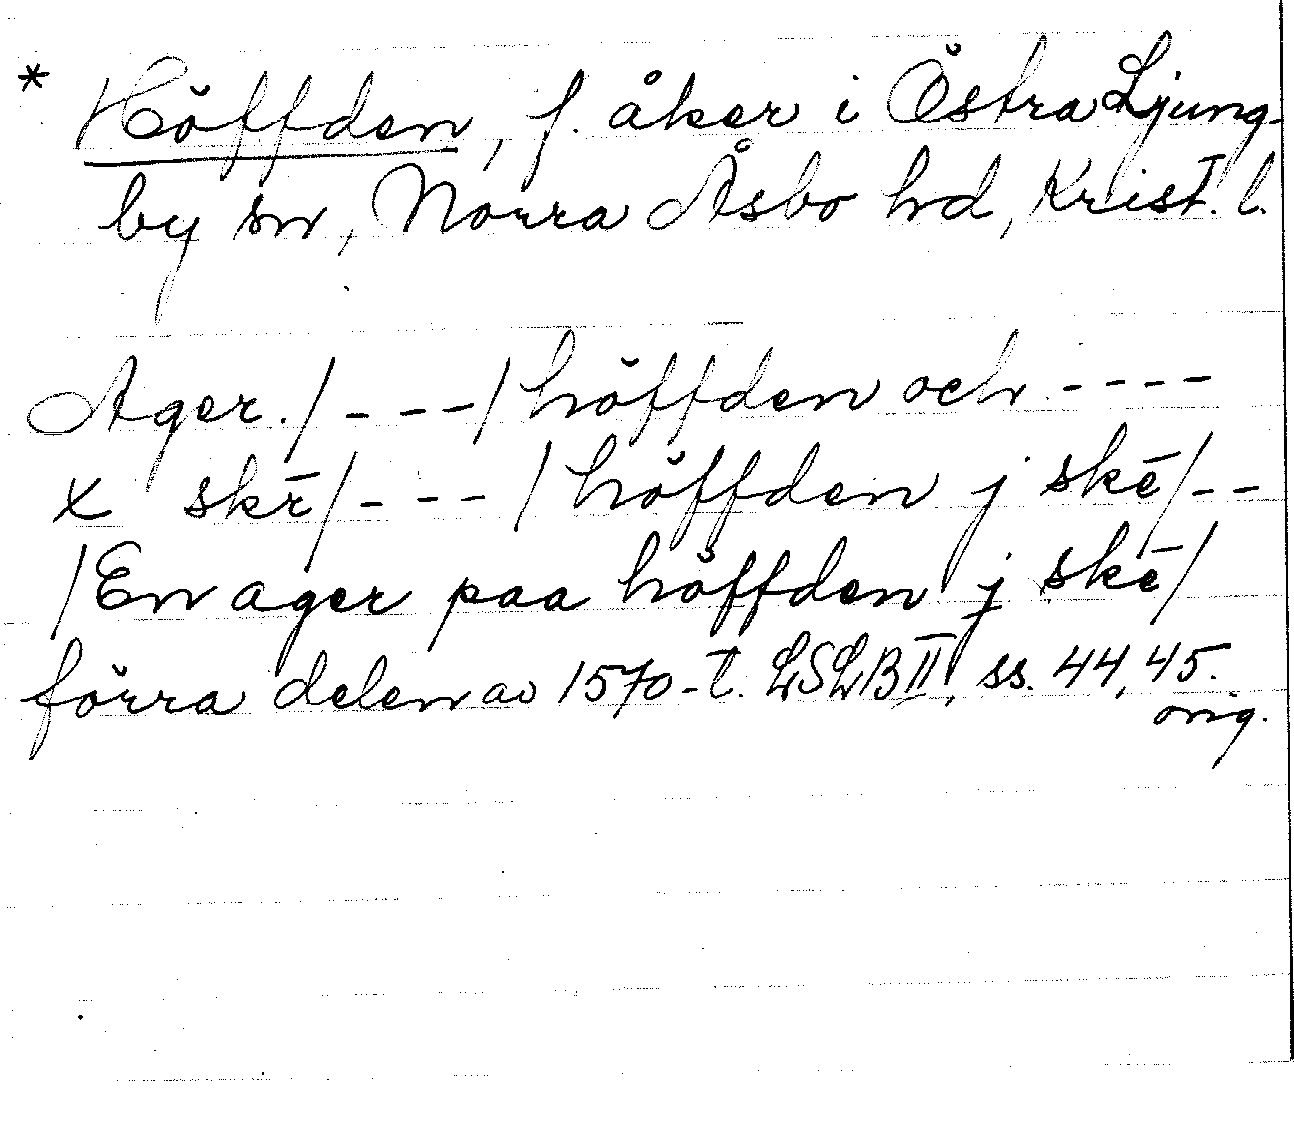 * Höffden, f. åker i Östra Ljung-
by sn, Norra Åsbo hd, Krist. l.
Ager. / - - - / höffden och - - - -
x skr̄ / - - - / höffden j skē / - -
/ En ager paa höffden j skē /
förra delen av 1570-t. LSLB II, ss. 44, 45.
orig.